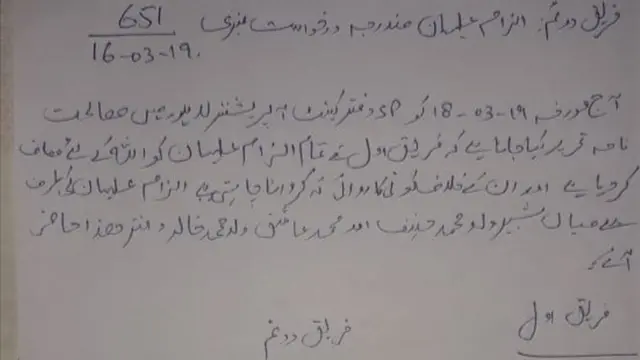 فریق دوئم: الزام علیہان مندرجہ درخواست نمبری 651
16-03-19.
آج مورخہ 19-03-18 کو SP دفتر کینٹ آپریشنز لاہور میں مصالحت
نامہ تحریر کیا جاتا ہے کہ فریق اول نے تمام الزام علیہان کو اللہ کے لیے معاف
کر دیا ہے اور ان کے خلاف کوئی کاروائی نہ کروانا چاہتی ہے الزام علیہان کی طرف
سے میاں شبیر ولد محمد حنیف اور محمد عاشق ولد محمد خالد دفتر ھذا حاضر
آئے
فریق اول
فریق دوئم